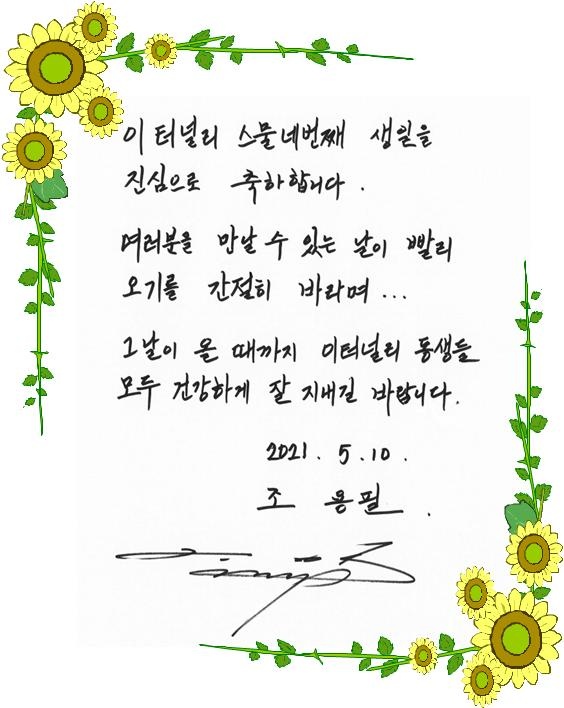 이터널리 스물네번째 생일을
진심으로 축하합니다.
여러분을 만날 수 있는 날이 빨리
오기를 간절히 바라며...
그날이 올 때까지 이터널리 동생들
모두 건강하게 잘 지내길 바랍니다.
2021. 5. 10.
조 용 필.